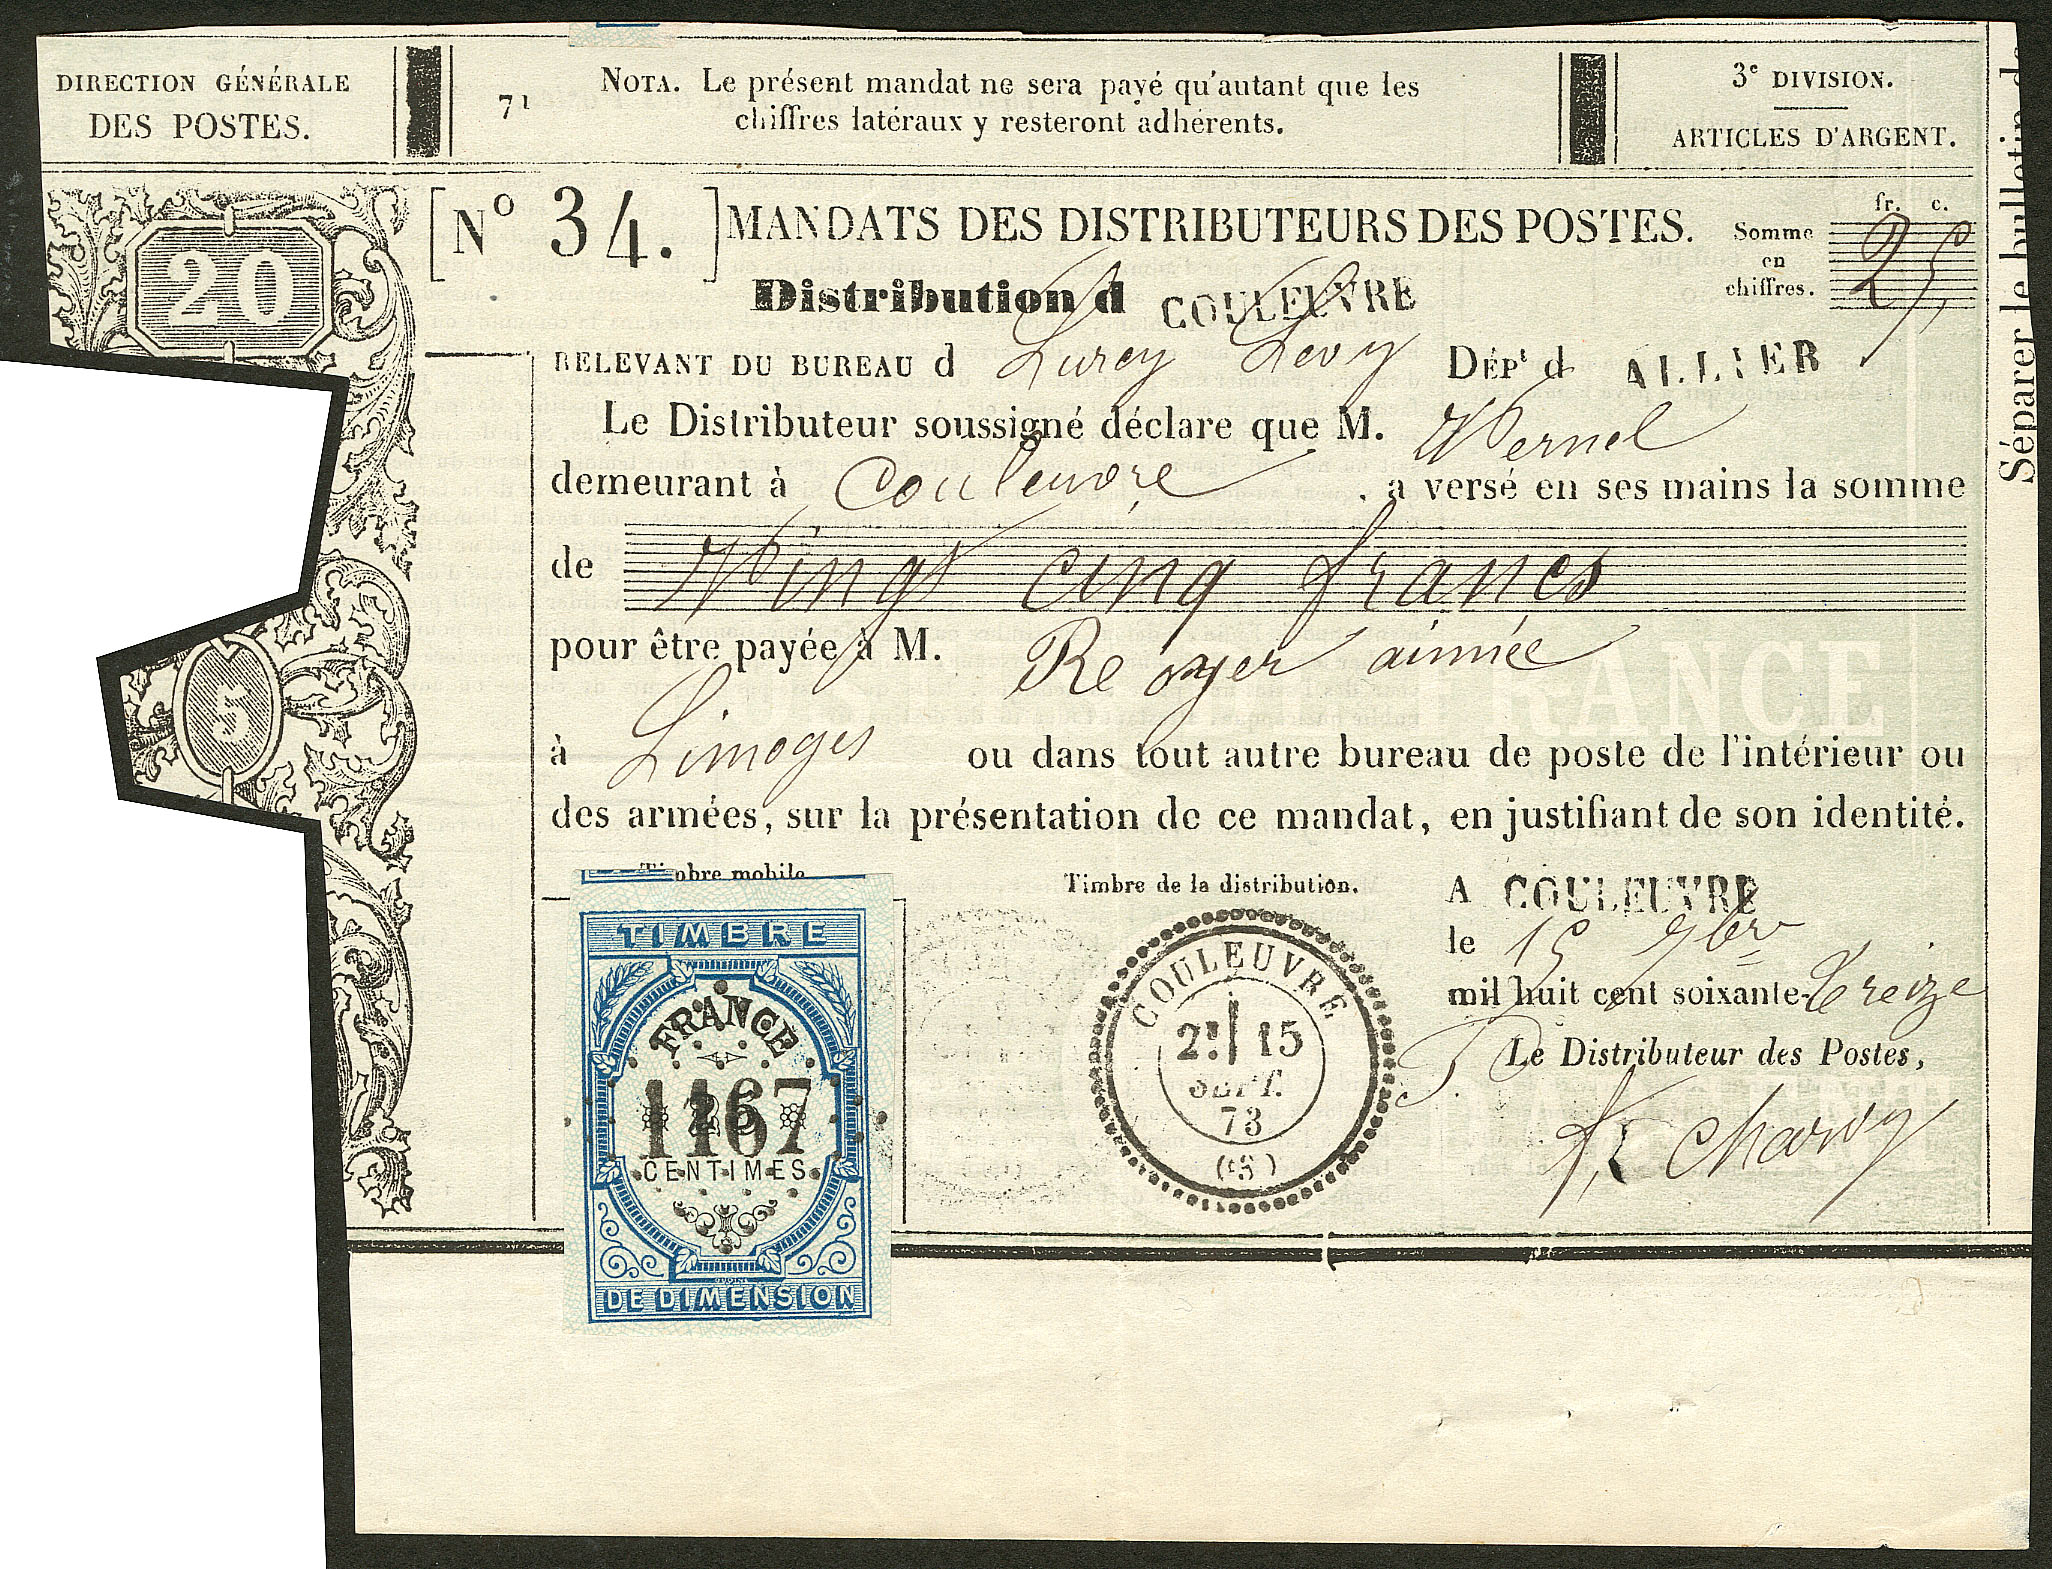 DIRECTION GÉNÉRALE
DES POSTES.
71
NOTA. Le présent mandat ne sera payé qu'autant que les
chiffres latéraux y resteront adhérents.
3e DIVISION.
ARTICLES D'ARGENT.
20
[No 34.] MANDATS DES DISTRIBUTEURS DES POSTES.
Somme en chiffres.
fr. c.
25,
Distribution d COULEUVRE
RELEVANT DU BUREAU d Lurcy Levy Dépt d ALLIER
Le Distributeur soussigné déclare que M. Vernel
demeurant à Couleuvre, a versé en ses mains la somme
de Vingt cinq francs
pour être payée à M. Reoyer aimée
5
à Limoges ou dans tout autre bureau de poste de l'intérieur ou
des armées, sur la présentation de ce mandat, en justifiant de son identité.
FRANCE
Timbre mobile
Timbre de la distribution.
A COULEUVRE
le 15 7bre
mil huit cent soixante-treize
Le Distributeur des Postes,
Charvy
TIMBRE
FRANCE
1167
CENTIMES
DE DIMENSION
COULEUVRE
2E 15
SEPT.
73
Séparer le bulletin de